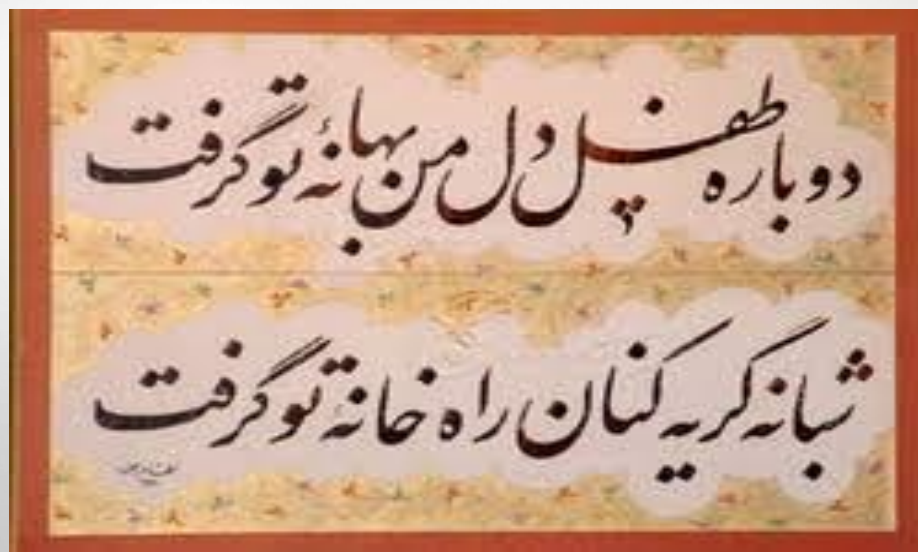 دوباره طفل دل من بهانهٔ تو گرفت
شبانه گریه کنان راه خانهٔ تو گرفت